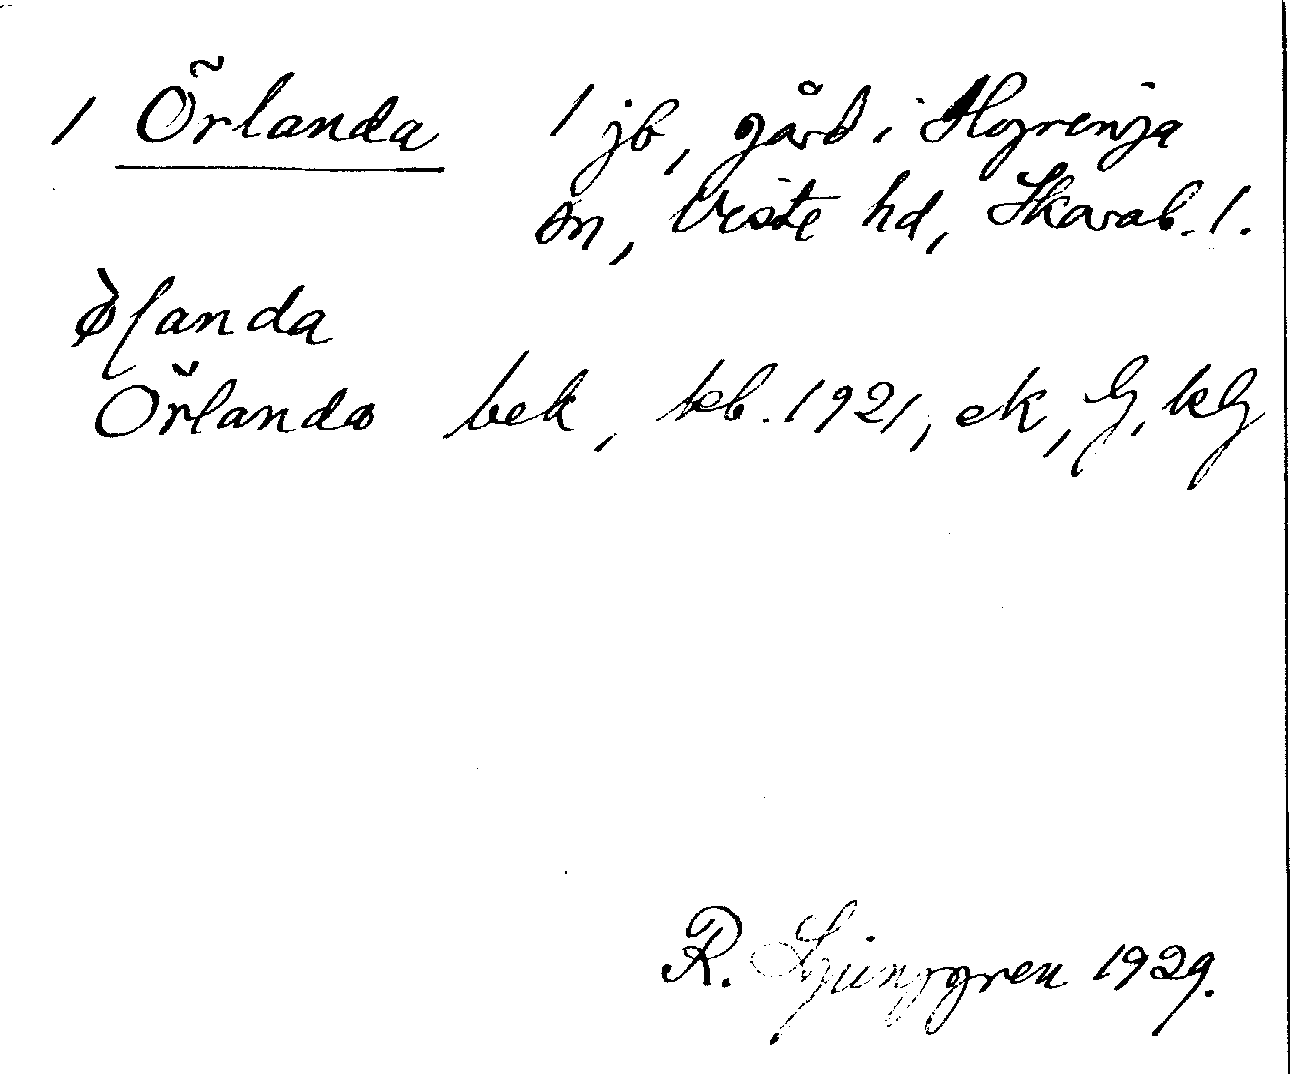 1 Örlanda 1 jb, gård i Hyringa
sn, Viste hd, Skarab. l.
ø̀ɭanda
Örlanda bek, kb. 1921, ek, G, kG
R. Ljunggren 1929.